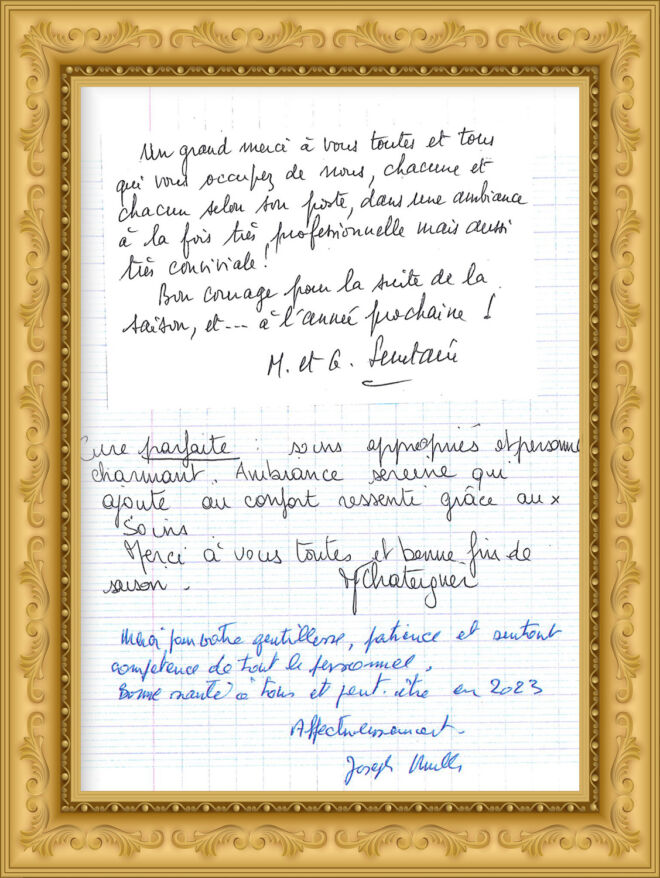 Un grand merci à vous toutes et tous
qui vous occupez de nous, chacune et
chacun selon son poste, dans une ambiance
à la fois très professionnelle mais aussi
très conviviale !
Bon courage pour la suite de la
saison, et --- à l'année prochaine !
M. et G.
Cure parfaite : soins appropriés et personne
charmant. Ambiance sereine qui
ajoute au confort ressenti grâce aux
Soins
Merci à vous toutes et bonne fin de
saison.
Chateigner
Merci pour votre gentillesse, patience et surtout
compétence de tout le personnel.
Bonne santé à tous et peut-être en 2023
Affectueusement.
Joseph